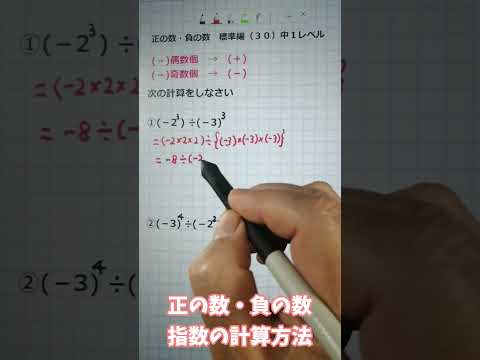 正の数・負の数 標準編(30)中1レベル
(−)偶数個 → (+)
(−)奇数個 → (−)
次の計算をしなさい
①(−2³)÷(−3)³
=(−2×2×2)÷{(−3)×(−3)×(−3)}
=−8÷(−2
②(−3)⁴÷(−2²
①(−2³)÷
=(−2×2×2)
=−8÷(
②(−3)⁴÷(
正の数・負の数
指数の計算方法